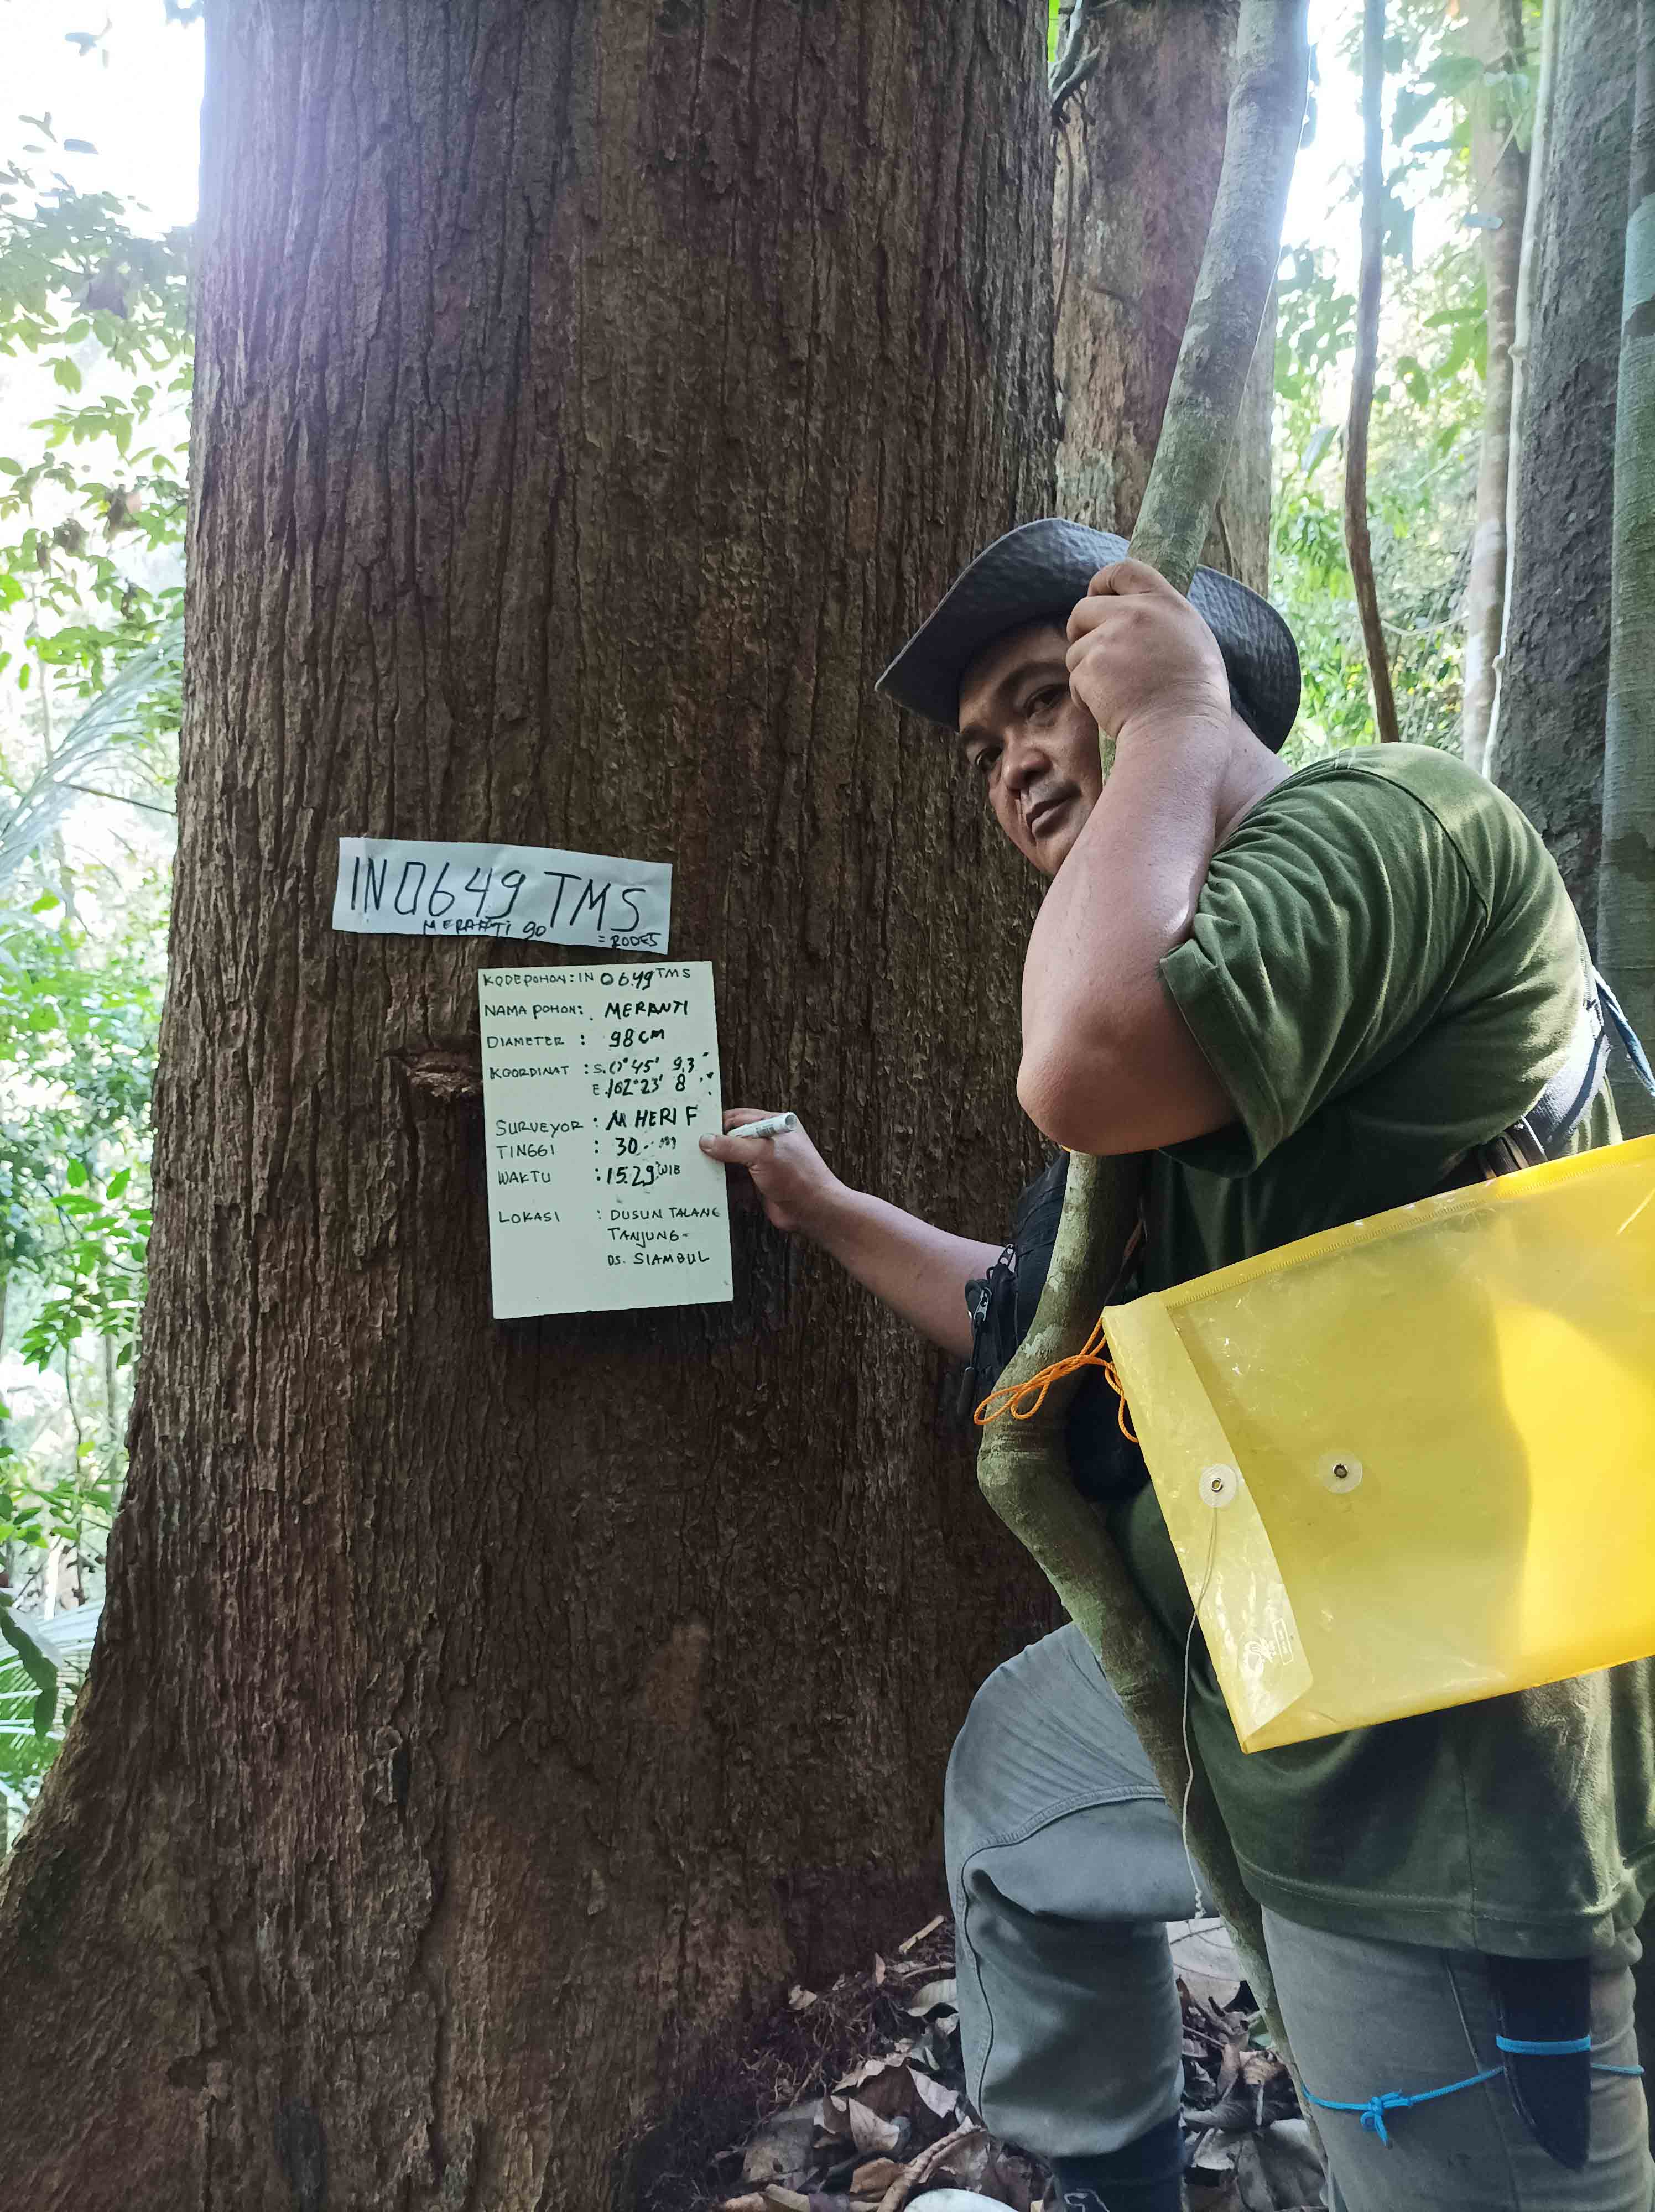 IN 0649 TMS
MERANTI 90
= RODES
KODE POHON : IN 0649 TMS
NAMA POHON : MERANTI
DIAMETER : 98 CM
KOORDINAT : S. 0° 45' 9.3"
E. 102° 23' 8"
SURVEYOR : M HERI F
TINGGI : 30
WAKTU : 15.29 WIB
LOKASI : DUSUN TALANG
TANJUNG-
DS. SIAMBUL